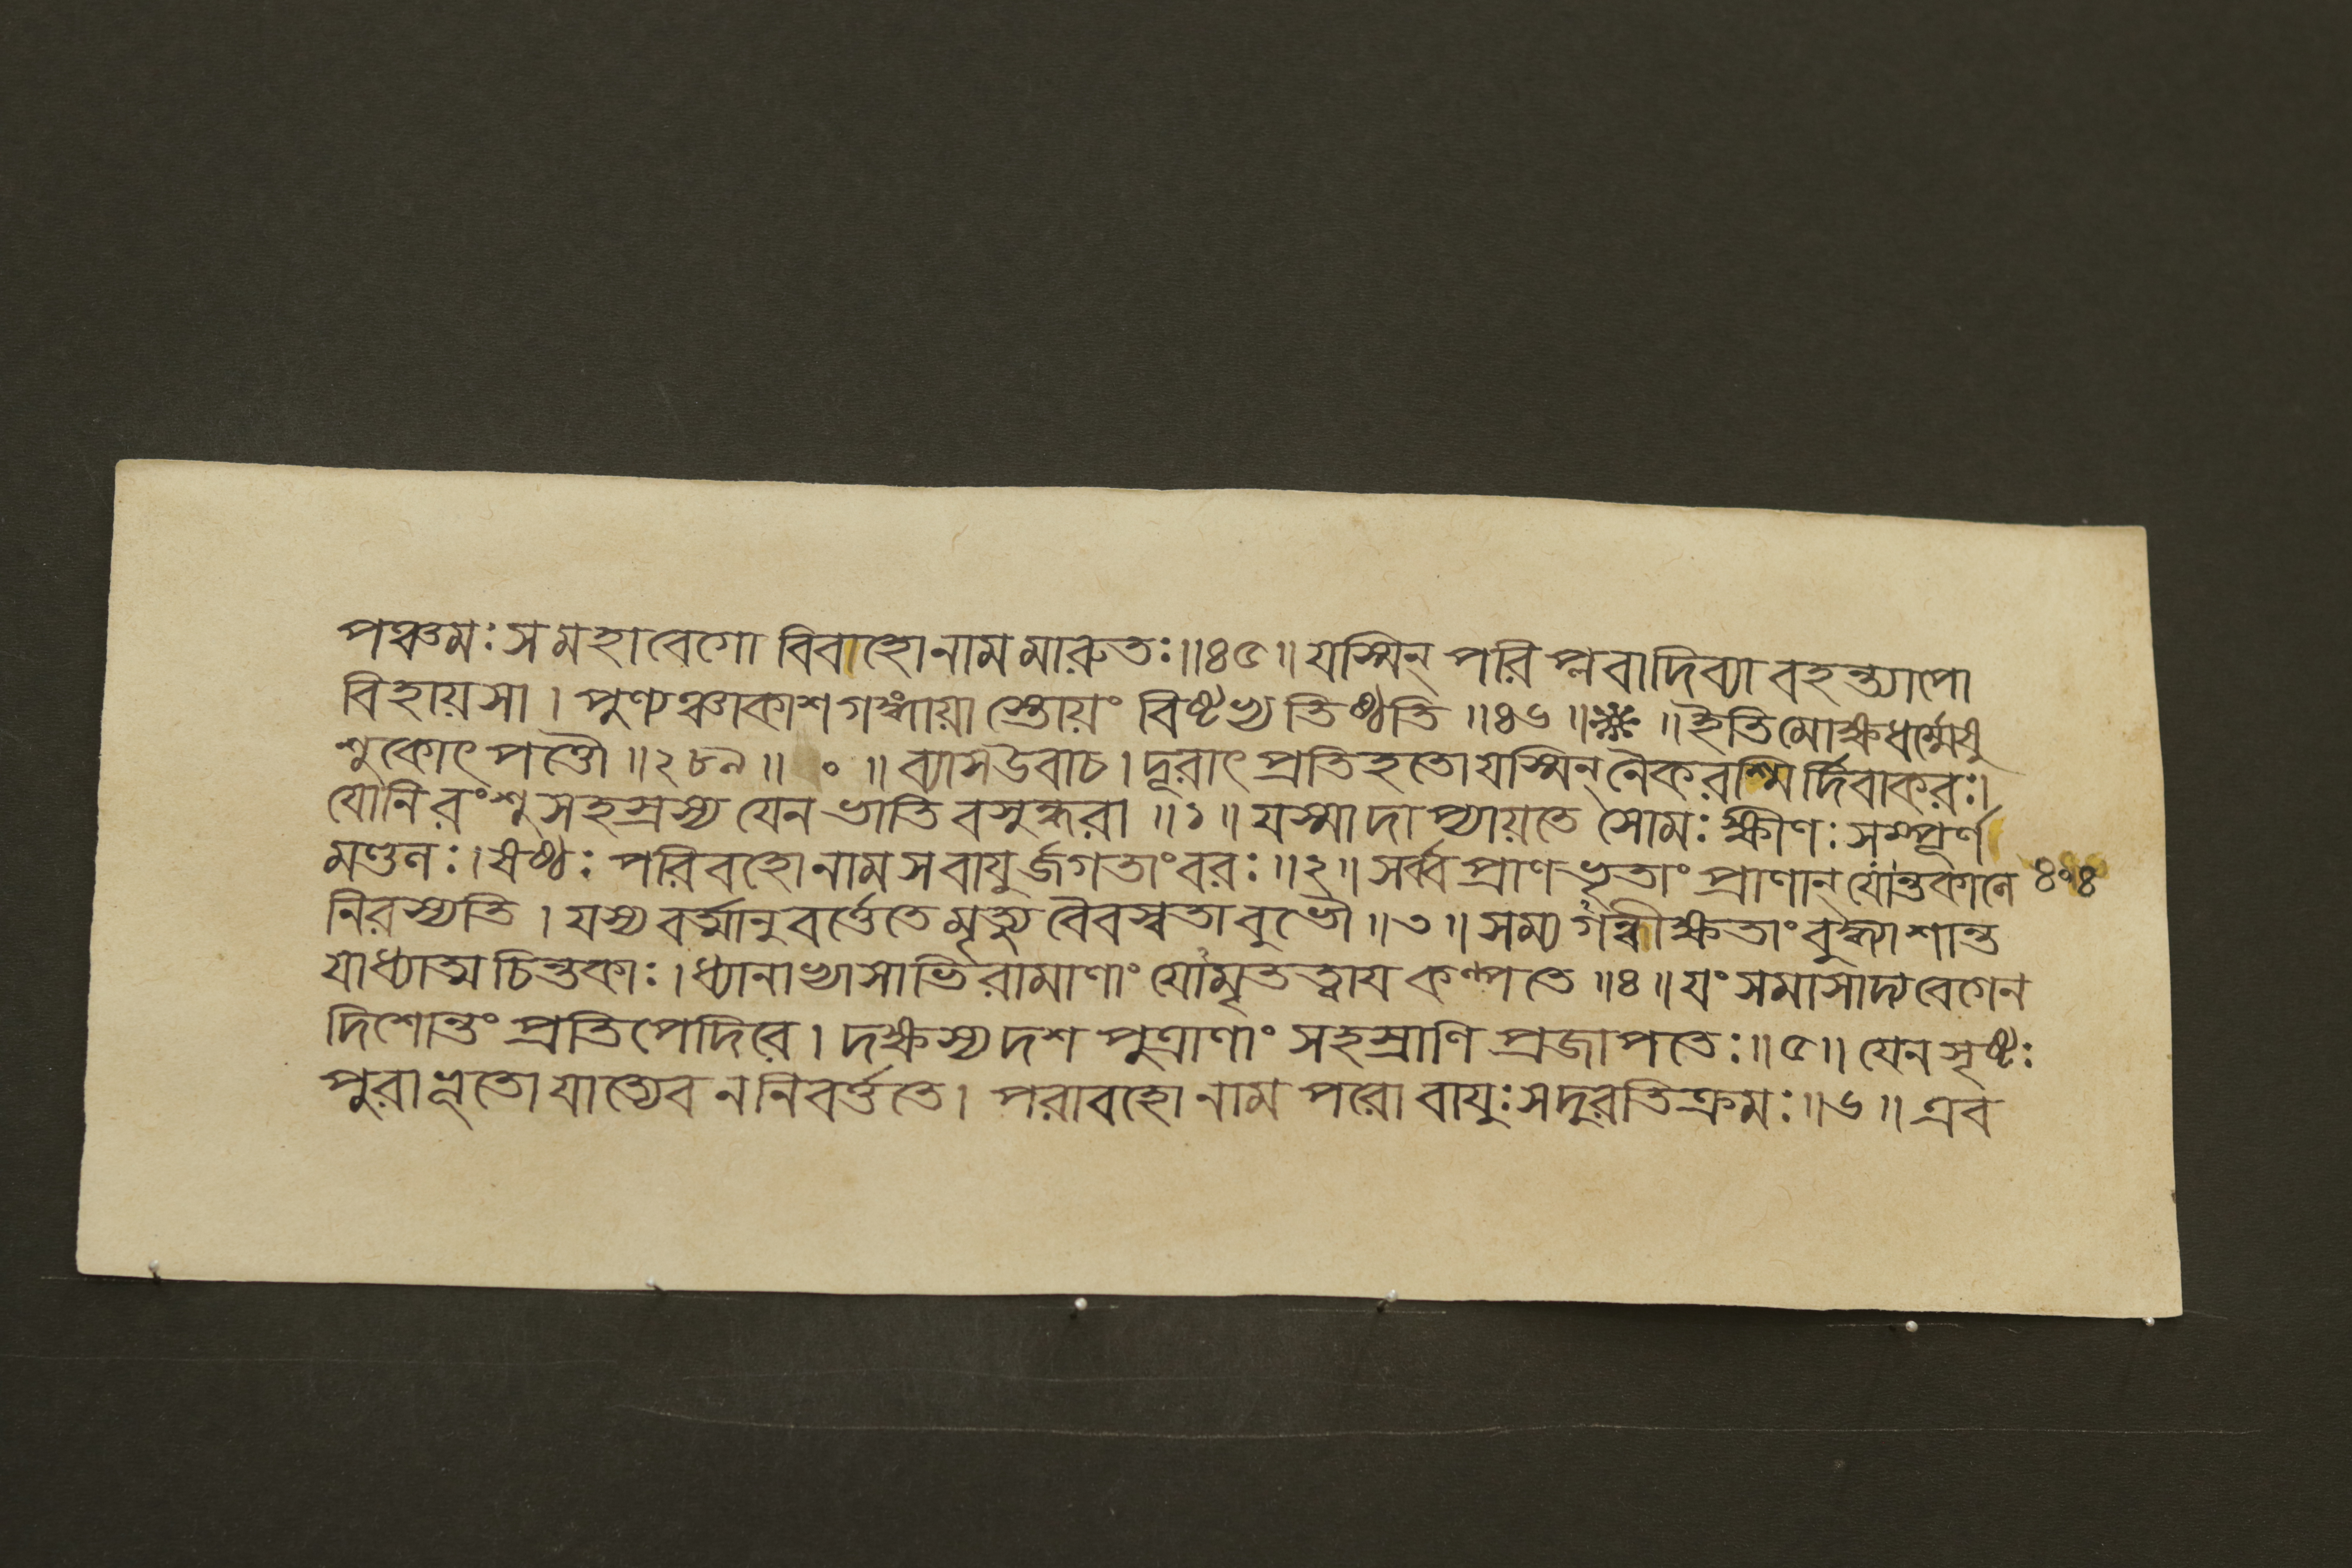 পঞ্চমঃ স মহাবেগো বিবাহো নাম মারুতঃ॥৪৫॥ যস্মিন্ পরিপ্লবা দিব্যা বহন্ত্যাপো
বিহায়সা। পুণ্যঞ্চাকাশগঙ্গায়াস্তোয়ং বিষ্টভ্য তিষ্ঠতি॥৪৬॥❋॥ইতি মোক্ষধর্ম্মেষু
শুকোৎপত্তৌ॥২৮৯॥ ০ ॥ব্যাস উবাচ। দূরাৎ প্রতিহতো যস্মিন্নৈকরশ্মির্দিবাকরঃ।
যোনিরংশুসহস্রস্য যেন ভাতি বসুন্ধরা॥১॥ যস্মাদাপ্যায়তে সোমঃ ক্ষীণঃ সম্পূর্ণ
মণ্ডলঃ। ষষ্ঠঃ পরিবহো নাম স বায়ুর্জগতাং বরঃ॥২॥ সর্ব্বপ্রাণভৃতাং প্রাণান্ যোন্তকালে ৪০৪
নিরস্যতি। যস্য বর্ত্মানুবর্ত্তেতে মৃত্যুবৈবস্বতাবুভৌ॥৩॥ সম্যগন্বীক্ষতাং বুদ্ধ্যা শান্ত
যাধ্যাত্মচিন্তকাঃ। ধ্যানাভ্যাসাভিরামাণাং যোমৃতত্বায কল্পতে॥৪॥ যং সমাসাদ্য বেগেন
দিশোন্তং প্রতিপেদিরে। দক্ষস্য দশ পুত্রাণাং সহস্রাণি প্রজাপতেঃ॥৫॥ যেন সৃষ্টঃ
পুরাভূতো যাত্যেব ন নিবর্ত্ততে। পরাবহো নাম পরো বায়ুঃ স দুরতিক্রমঃ॥৬॥ এব